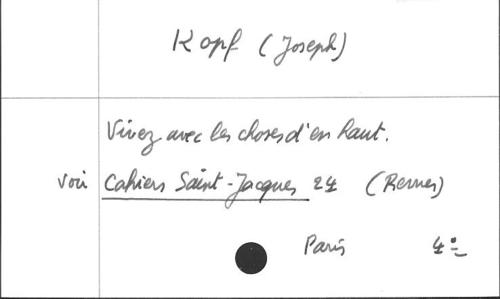 Kopf (Joseph)
Vivez avec les choses d'en haut.
voir Cahiers Saint-Jacques 24 (Revues)
Paris 4°